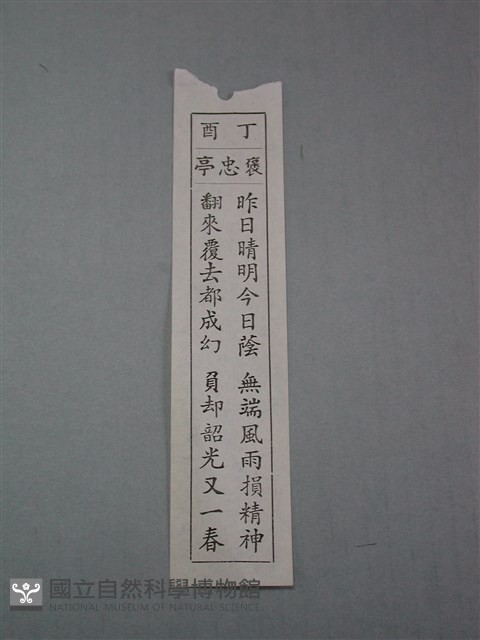 丁酉
褒忠亭
昨日晴明今日蔭 無端風雨損精神
翻來覆去都成幻 負却韶光又一春
國立自然科學博物館
NATIONAL MUSEUM OF NATURAL SCIENCE